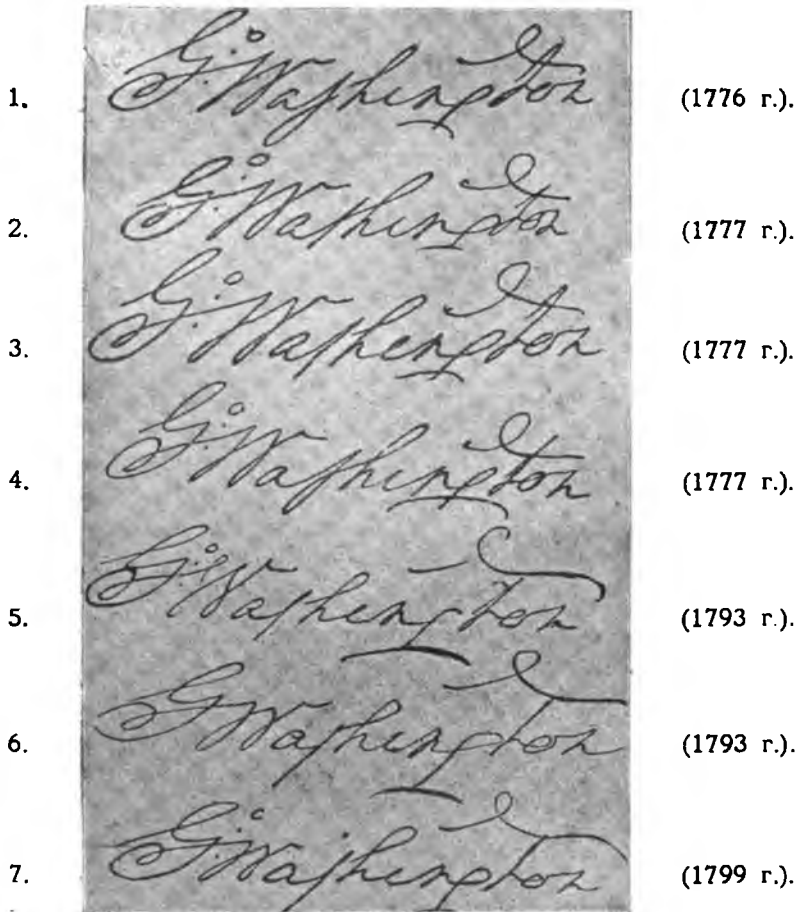 1. G:Washington (1776 г.).
2. G:Washington (1777 г.).
3. G:Washington (1777 г.).
4. G:Washington (1777 г.).
5. G:Washington (1793 г.).
6. GWashington (1793 г.).
7. G:Washington (1799 г.).